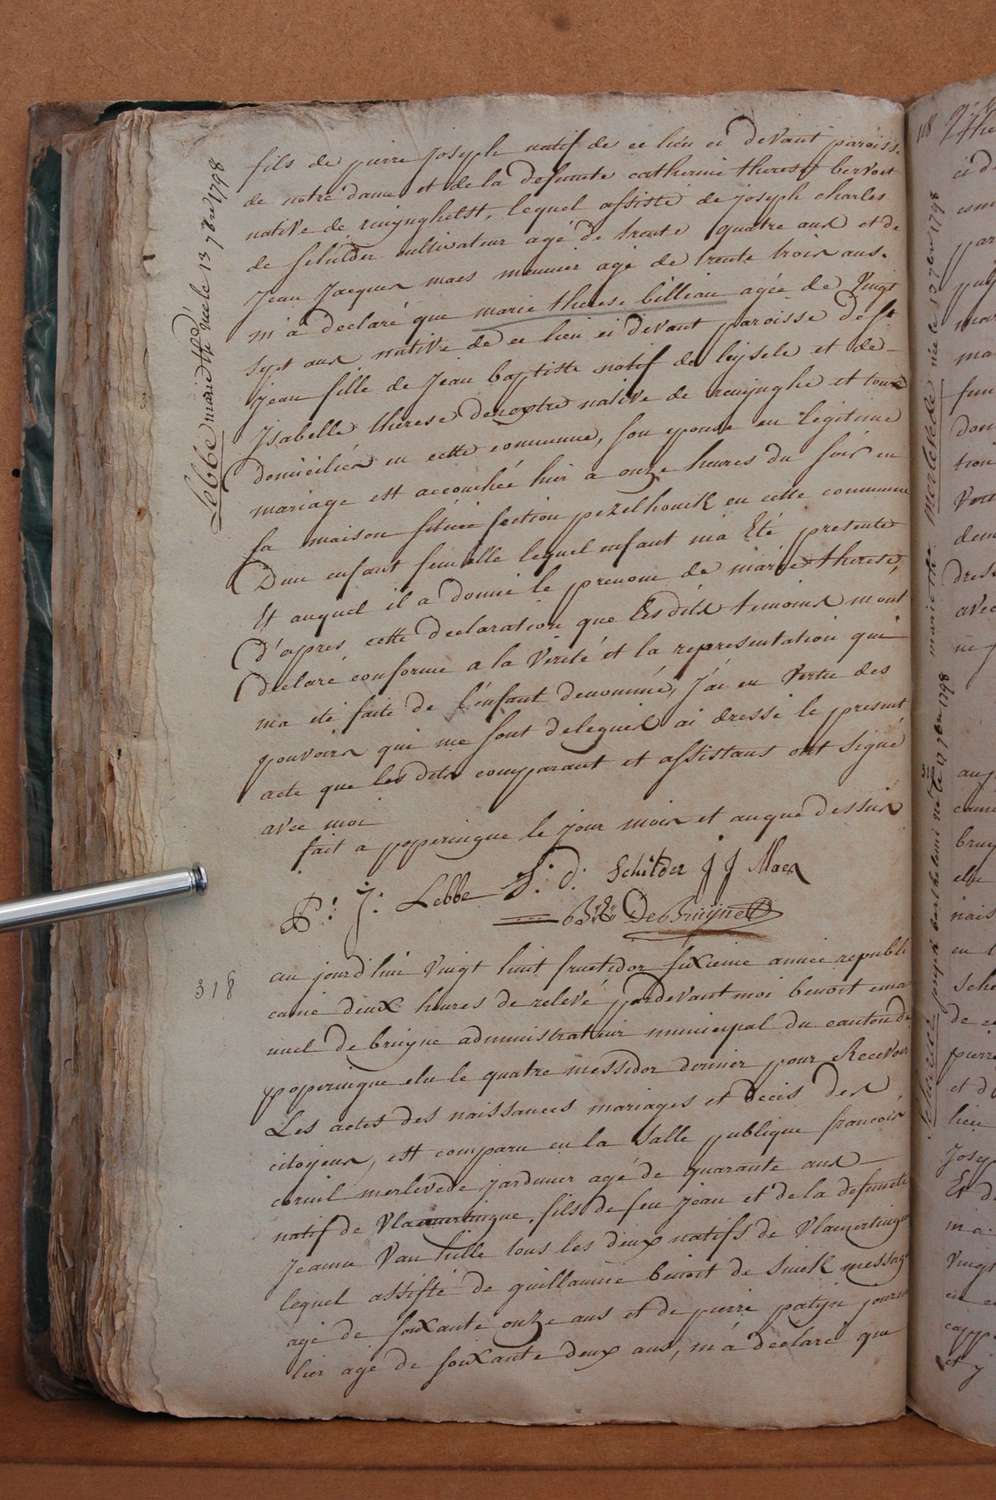 Lebbe marie the née le 13 7bre 1798
fils de pierre Joseph natif de ce lieu ci devant paroisse
de notre dame et de la defunte catherine therese bervoet
native de reninghelst, lequel assisté de joseph charles
de schilder cultivateur agé de trente quatre aus et de
Jean Jacques maes meunier agé de trente trois aus.
m'a declaré que marie therese billiau agée de Vingt
sept aus native de ce lieu ci devant paroisse de st
jean fille de Jean baptiste natif de leysele et de
Isabelle therese decoxtre native de reninghe et tous
domiciliés en cette commune, son epouse en legitime
mariage est accouchée hier a onze heures du soir en
sa maison située section pezelhouck en cette commune
Dun enfant femelle lequel enfant ma Eté presente
Et auquel il a donné le prenom de marie therese,
D'apres cette declaration que les dits temoins m'ont
declaré conforme a la Verité et la representation qui
ma eté faite de l'enfant denommé, j'ai en Vertu des
pouvoirs qui me sont delegués ai dressé le present
acte que les dits comparant et assistans ont signé
avec moi
fait a poperingue le jour mois et anque dessus
P: J: Lebbe J: d: Schilder J J Maes
BE DeBruyne
318
au jourd'hui Vingt huit fructidor sixieme année republi
caine deux heures de relevé pardevant moi benoit ema
nuel de bruyne administrateur municipal du canton de
poperingue elu le quatre messidor dernier pour Recevoir
Les actes des naissances mariages et decis des
citoyens, est comparu en la Salle publique francois
corneil merlevede jardinier agé de quarante aus
natif de Vlamertingue, fils de feu jean et de la defuncte
Jeanne Van hille tous les deux natifs de Vlamertingue
lequel assisté de guillaume benoit de Snick messag
agé de soixante onze aus et de pierre patyn journa
lier agé de soixante deux aus, m'a declaré que
118
merlevede marie the née le 10 7bre 1798
joseph barthelomi né le 17 7bre 1798